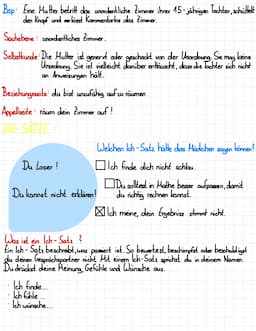 Bsp.: Eine Mutter betritt das unordentliche Zimmer ihrer 15-jährigen Tochter, schüttelt
den Kopf und verlässt kommentarlos das Zimmer.
Sachebene: unordentliches Zimmer.
Selbstkunde: Die Mutter ist genervt oder geschockt von der Unordnung. Sie mag keine
Unordnung. Sie ist vielleicht darüber enttäuscht, dass die Tochter sich nicht
an Anweisungen hält.
Beziehungsseite: du bist unfähig aufzuräumen
Appellseite: räum dein Zimmer auf!
ICH-SÄTZE
Welchen Ich-Satz hätte das Mädchen sagen können?
Du Loser!
Ich finde dich nicht schlau.
Du solltest in Mathe besser aufpassen, damit
du richtig rechnen kannst.
Du kannst nicht erklären!
Ich meine, dein Ergebnis stimmt nicht.
Was ist ein Ich-Satz?
Ein Ich-Satz beschreibt, was passiert ist. So bewertest, beschimpfst oder beschuldigst
du deinen Gesprächspartner nicht. Mit einem Ich-Satz sprichst du in deinem Namen.
Du drückst deine Meinung, Gefühle und Wünsche aus.
· Ich finde...
· Ich fühle...
· Ich wünsche...